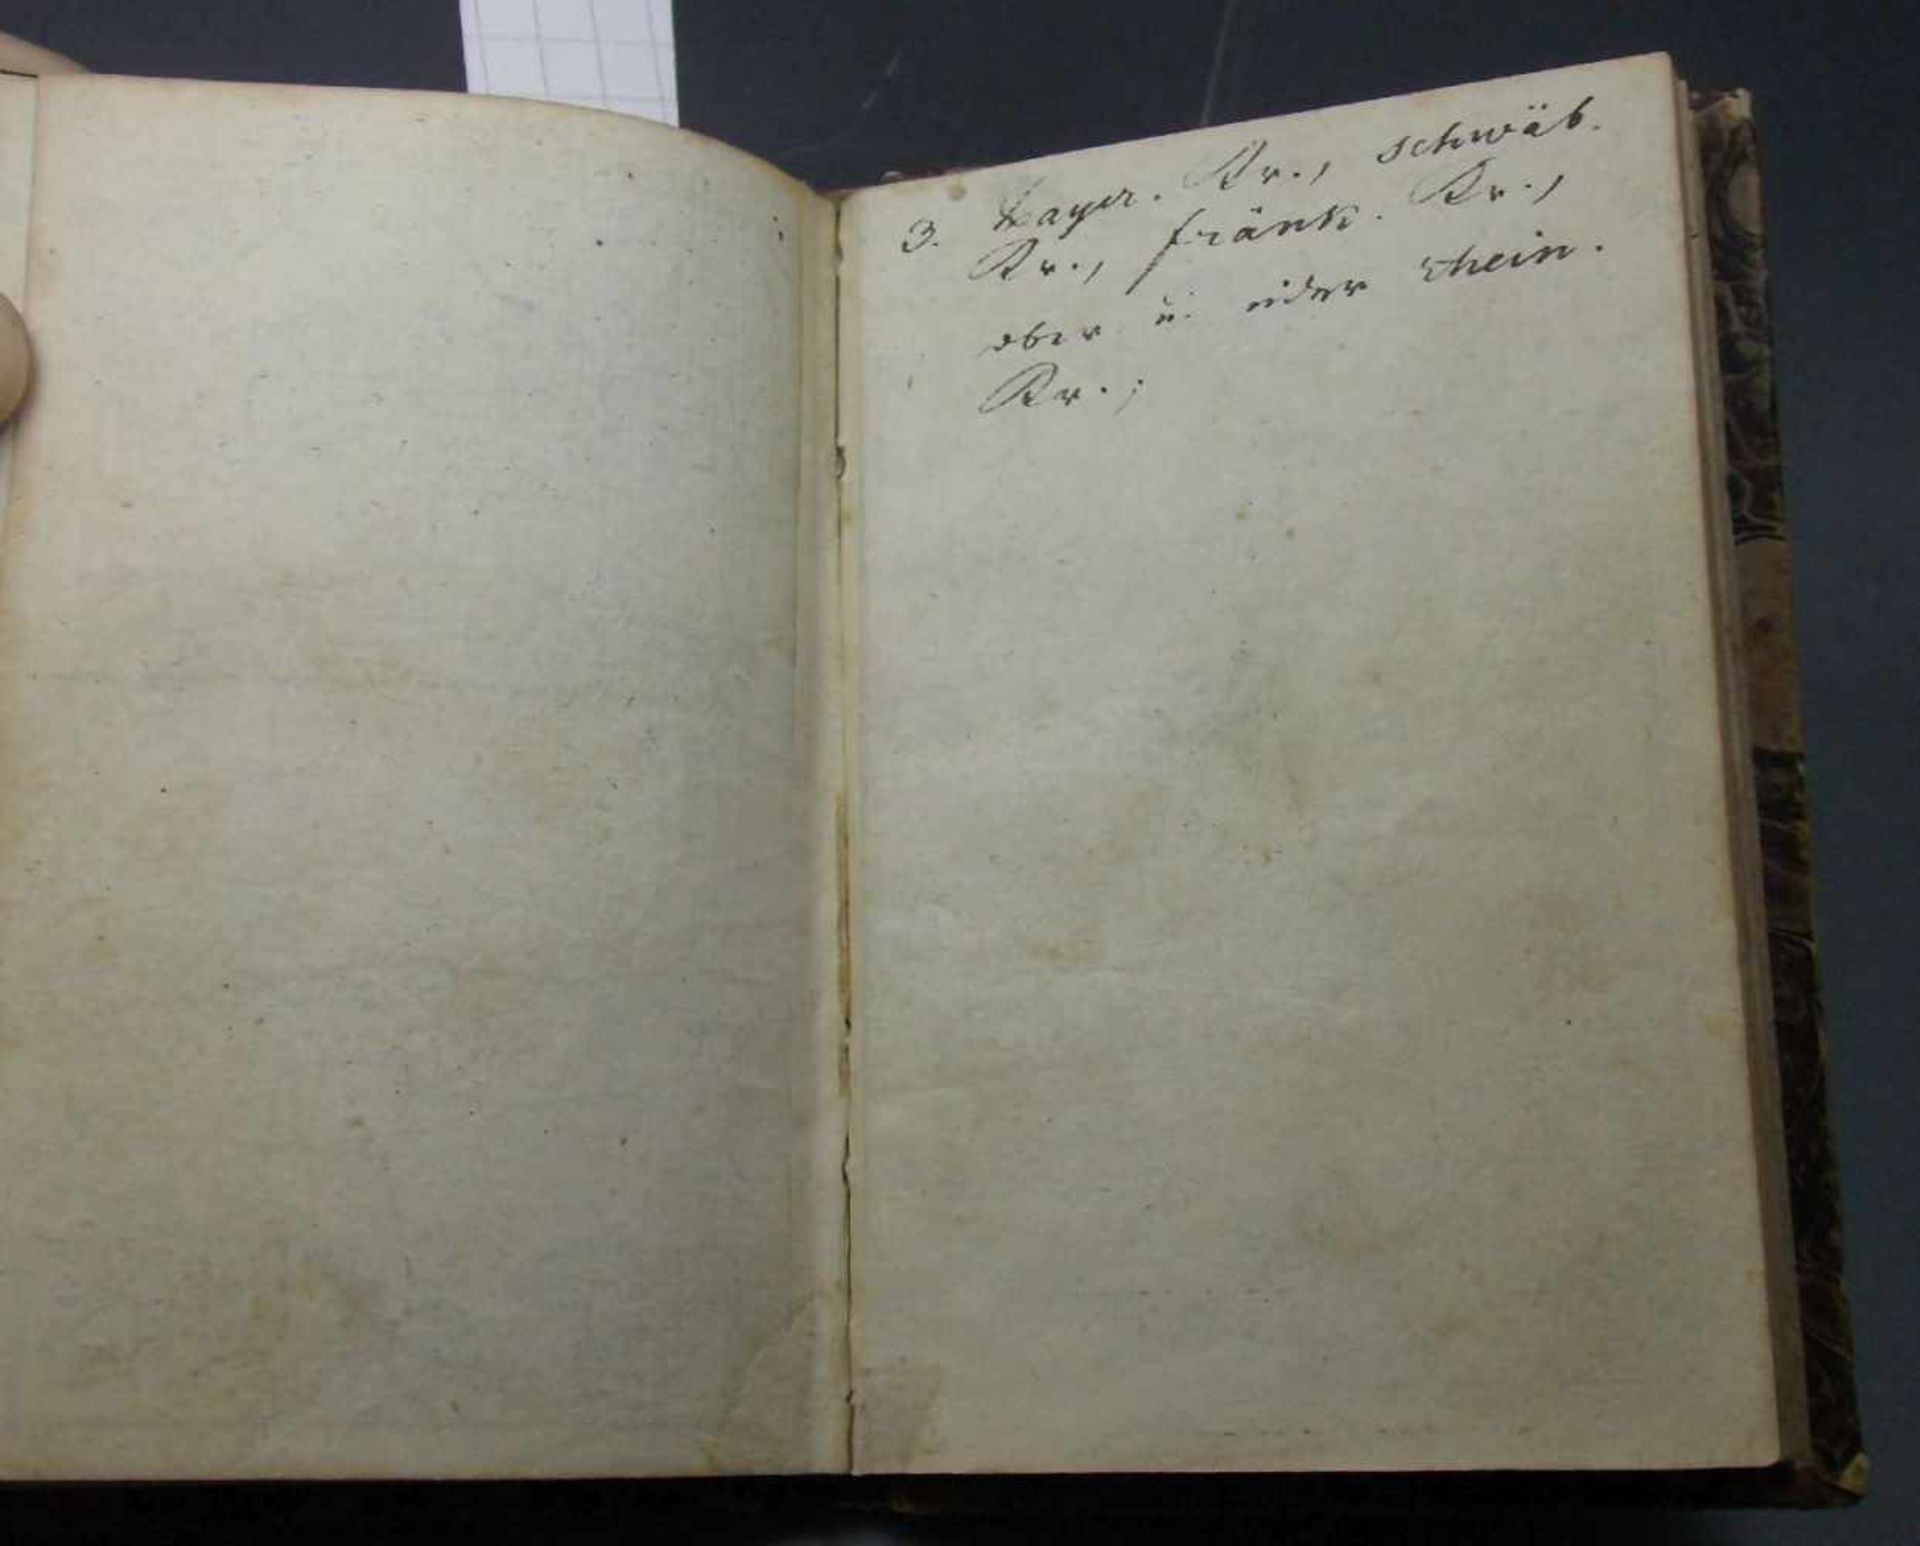 3. bayer. Kr., schwäb.
Kr., fränk. Kr.,
ober u. nider rhein.
Kr.;